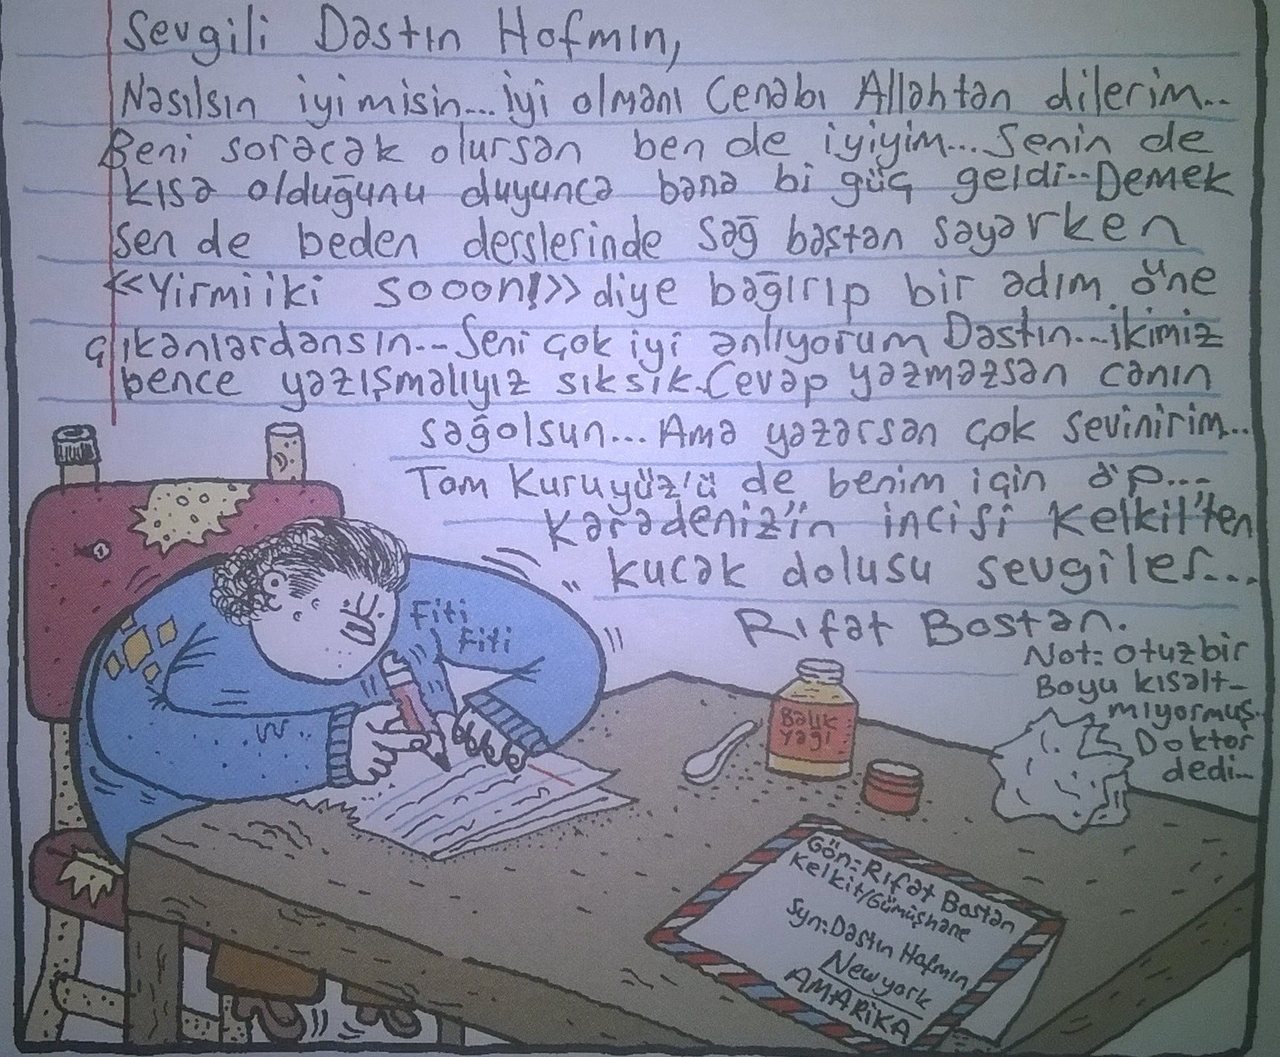 Sevgili Dastın Hofmın,
Nasılsın iyi misin... iyi olmanı Cenabı Allahtan dilerim..
Beni soracak olursan ben de iyiyim... Senin de
kısa olduğunu duyunca bana bi güç geldi.. Demek
sen de beden derslerinde sağ baştan sayarken
<<Yirmiiki sooon!>> diye bağırıp bir adım öne
çıkanlardansın... Seni çok iyi anlıyorum Dastın... ikimiz
bence yazışmalıyız sıksık. Cevap yazmazsan canın
sağolsun... Ama yazarsan çok sevinirim...
Tom Kuruyüz'ü de benim için öp...
Karadeniz'in incisi Kelkit'ten
kucak dolusu sevgiler...
Rıfat Bostan.
Not: otuzbir
Boyu kısalt-
mıyormuş.
Doktor
dedi..
Fiti
Fiti
Balık
yağı
Gön: Rıfat Bostan
Kelkit/Gümüşhane
Syn: Dastın Hofmın
Newyork
AMARİKA